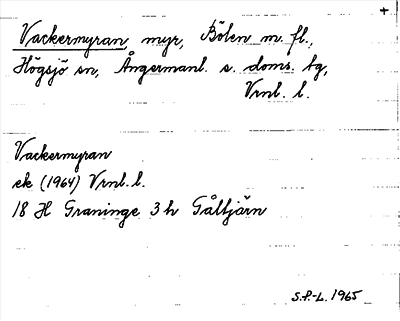 +
Vackermyran, myr, Bölen m. fl.,
Högsjö sn, Ångermanl. s. doms. tg,
Vrnl. l.
Vackermyran
ek (1964) Vrnl. l.
18 H Graninge 3 h Gåltjärn
S.P-L. 1965